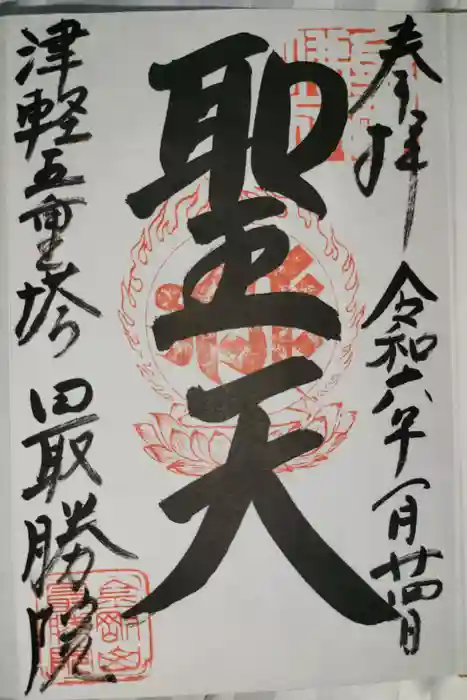 奉拝
令和六年一月廿四日
聖天
津軽五重塔
最勝院